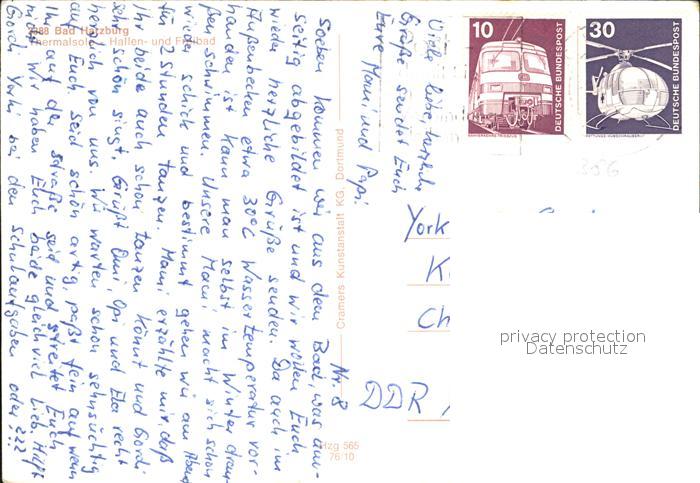 3388 Bad Harzburg
Thermalsole-, Hallen- und Freibad
Nr. 8
Soeben kommen wir aus dem Bad, was um-
seitig abgebildet ist und wir wollen Euch
wieder herzliche Grüße senden. Da auch im
Außenbecken etwa 30°C Wassertemperatur vor-
handen ist kann man selbst im Winter drau-
ßen schwimmen. Unsere Mami macht sich schon
wieder schick und bestimmt gehen wir am Abend
für Stunden tanzen. Mami erzählte mir, daß
Ihr beide auch schon tanzen könnt und Gordi
schön singt. Grüßt Omi, Opi und recht
herzlich von uns. Wir warten schon sehnsüchtig
auf Euch. Seid schön artig, paßt fein auf wenn
Ihr auf der Straße seid und streitet Euch
nicht. Wir haben Euch beide gleich viel lieb. Hilft
Gordi Yorki bei den Schulaufgaben oder ???
Viele liebe, herzliche
Grüße sendet Euch
Eure Mami und Papi
Cramers Kunstanstalt KG, Dortmund
Hzg 565
76/10
10
DEUTSCHE BUNDESPOST
30
DEUTSCHE BUNDESPOST
356
York
K
Ch
DDR
privacy protection
Datenschutz